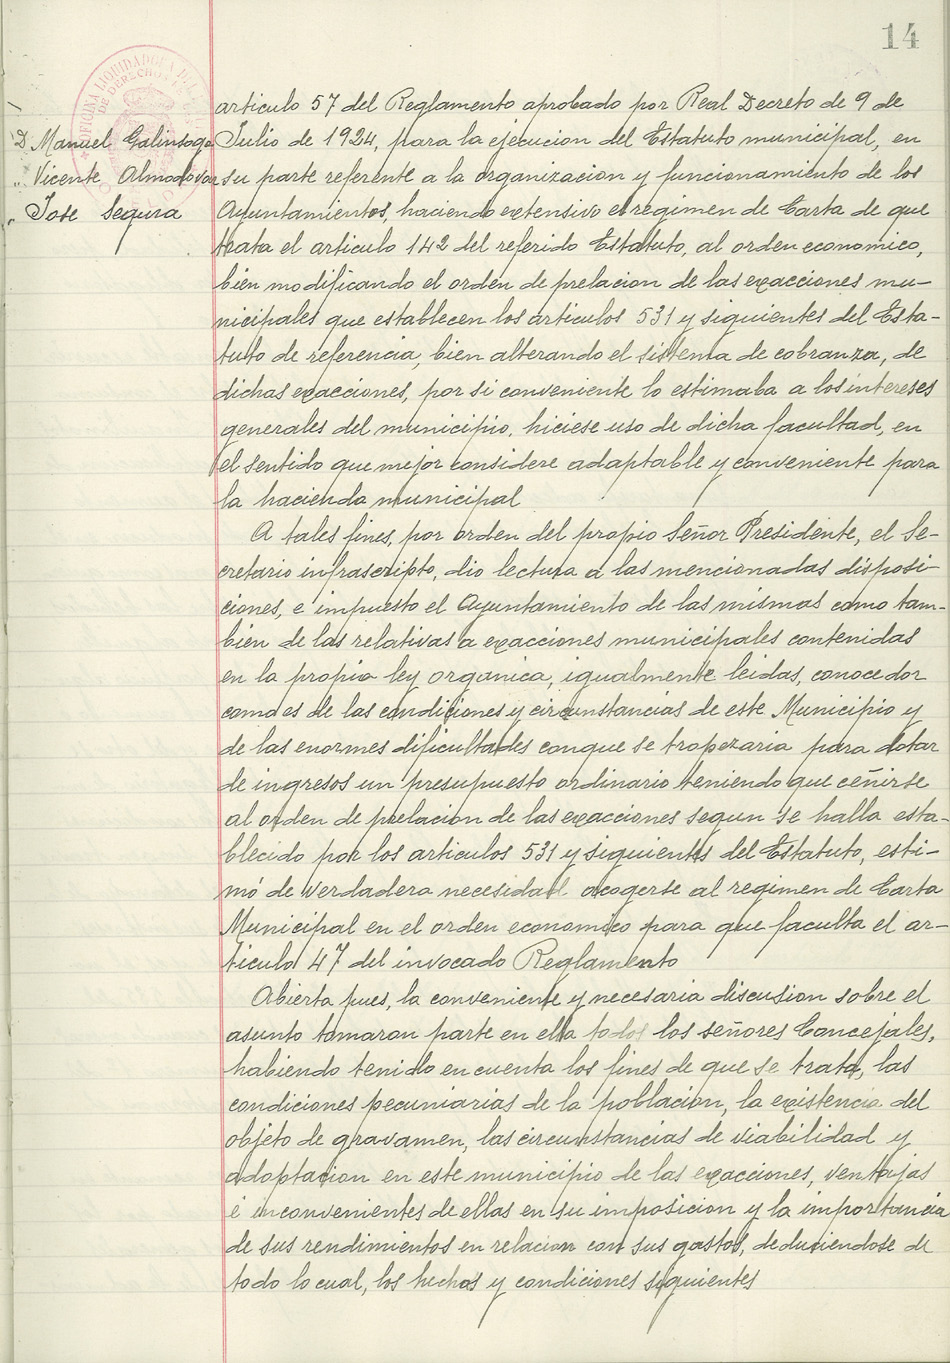 14
D Manuel Galinsoga
" Vicente Almodovar
" Jose Segura
articulo 57 del Reglamento aprobado por Real Decreto de 9 de
Julio de 1924, para la ejecucion del Estatuto municipal, en
su parte referente a la organizacion y funcionamiento de los
Ayuntamientos, haciendo extensivo el regimen de Carta de que
trata el articulo 142 del referido Estatuto, al orden economico,
bien modificando el orden de prelacion de las exacciones mu-
nicipales que establecen los articulos 531 y siguientes del Esta-
tuto de referencia, bien alterando el sistema de cobranza, de
dichas exacciones, por si conveniente lo estimaba a los intereses
generales del municipio, hiciese uso de dicha facultad, en
el sentido que mejor considere adaptable y conveniente para
la hacienda municipal
A tales fines, por orden del propio Señor Presidente, el Se-
cretario infrascripto, dio lectura a las mencionadas disposi-
ciones, e impuesto el Ayuntamiento de las mismas como tam-
bien de las relativas a exacciones municipales contenidas
en la propia ley organica, igualmente leidas, conocedor
como es de las condiciones y circunstancias de este Municipio y
de las enormes dificultades conque se tropezaria para dotar
de ingresos un presupuesto ordinario teniendo que ceñirse
al orden de prelacion de las exacciones segun se halla esta-
blecido por los articulos 531 y siguientes del Estatuto, esti-
mó de verdadera necesidad acogerse al regimen de Carta
Municipal en el orden economico para que faculta el ar-
ticulo 47 del invocado Reglamento
Abierta pues, la conveniente y necesaria discusion sobre el
asunto tomaron parte en ella todos los señores Concejales,
habiendo tenido en cuenta los fines de que se trata, las
condiciones pecuniarias de la poblacion, la existencia del
objeto de gravamen, las circunstancias de viabilidad y
adoptacion en este municipio de las exacciones, ventajas
é inconvenientes de ellas en su imposicion y la importancia
de sus rendimientos en relacion con sus gastos, deduciendose de
todo lo cual, los hechos y condiciones siguientes